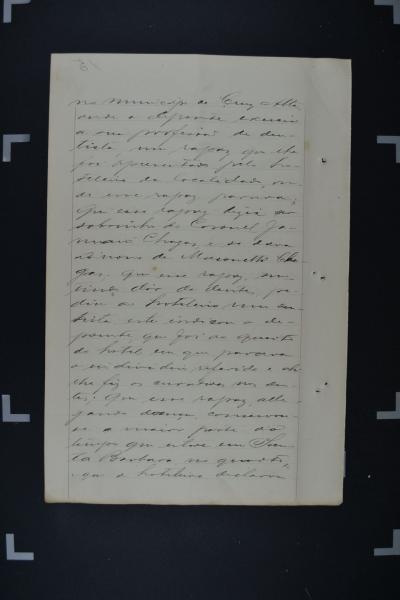 no municipio de Cruz Alta
onde o depoente exercia
a sua profissão de den-
tista um rapaz que lhe
foi apresentado pelo ho-
teleiro da localidade, on-
de esse rapaz parava;
que esse rapaz dizia ser
sobrinho do Coronel
Chagas, e se dava
o nome de Cha-
gas. Que esse rapaz, sen-
tindo dôr de dentes, pe-
diu ao hoteleiro um den-
tista e este indicou o de-
poente, que foi ao quarto
do hotel em que parava
o individuo referido e ahi
lhe fez os curativos nos den-
tes; Que esse rapaz, alle-
gando doença, conservou-
se a maior parte do
tempo que esteve em San-
ta Barbara no quarto,
que o hoteleiro declarou